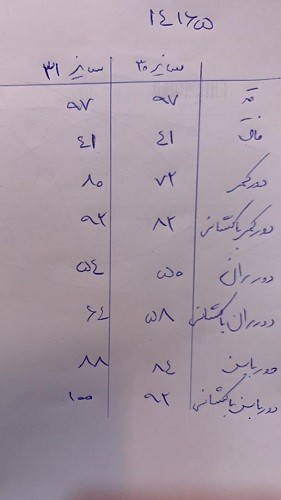 ۱۴۱۶۵
سایز ۳۰ سایز ۳۱
قد ۹۷ ۹۷
فاق ۴۱ ۴۱
دور کمر ۷۲ ۸۰
دور کمر با کشسانی ۸۲ ۹۲
دور ران ۵۰ ۵۴
دور ران با کشسانی ۵۸ ۶۴
دور باسن ۸۴ ۸۸
دور باسن با کشسانی ۹۲ ۱۰۰